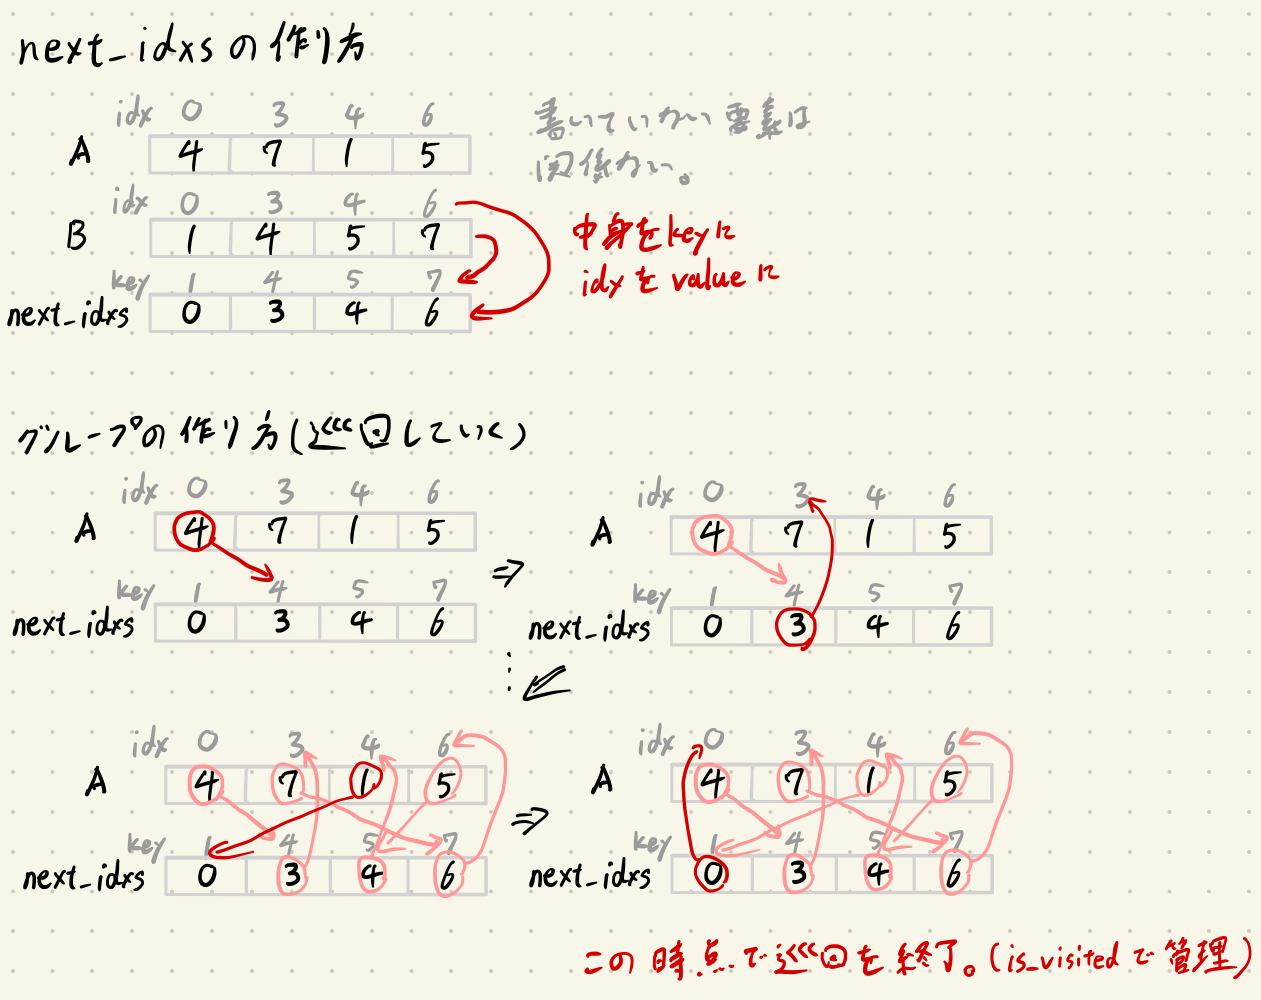 next_idxsの作り方
idx 0 3 4 6
A 4 7 1 5
書いていない要素は
関係ない。
idx 0 3 4 6
B 1 4 5 7
中身をkeyに
idxをvalueに
key 1 4 5 7
next_idxs 0 3 4 6
グループの作り方(巡回していく)
idx 0 3 4 6
A 4 7 1 5
key 1 4 5 7
next_idxs 0 3 4 6
⇒
idx 0 3 4 6
A 4 7 1 5
key 1 4 5 7
next_idxs 0 3 4 6
idx 0 3 4 6
A 4 7 1 5
key 1 4 5 7
next_idxs 0 3 4 6
⇒
idx 0 3 4 6
A 4 7 1 5
key 1 4 5 7
next_idxs 0 3 4 6
この時点で巡回を終了。(is_visitedで管理)